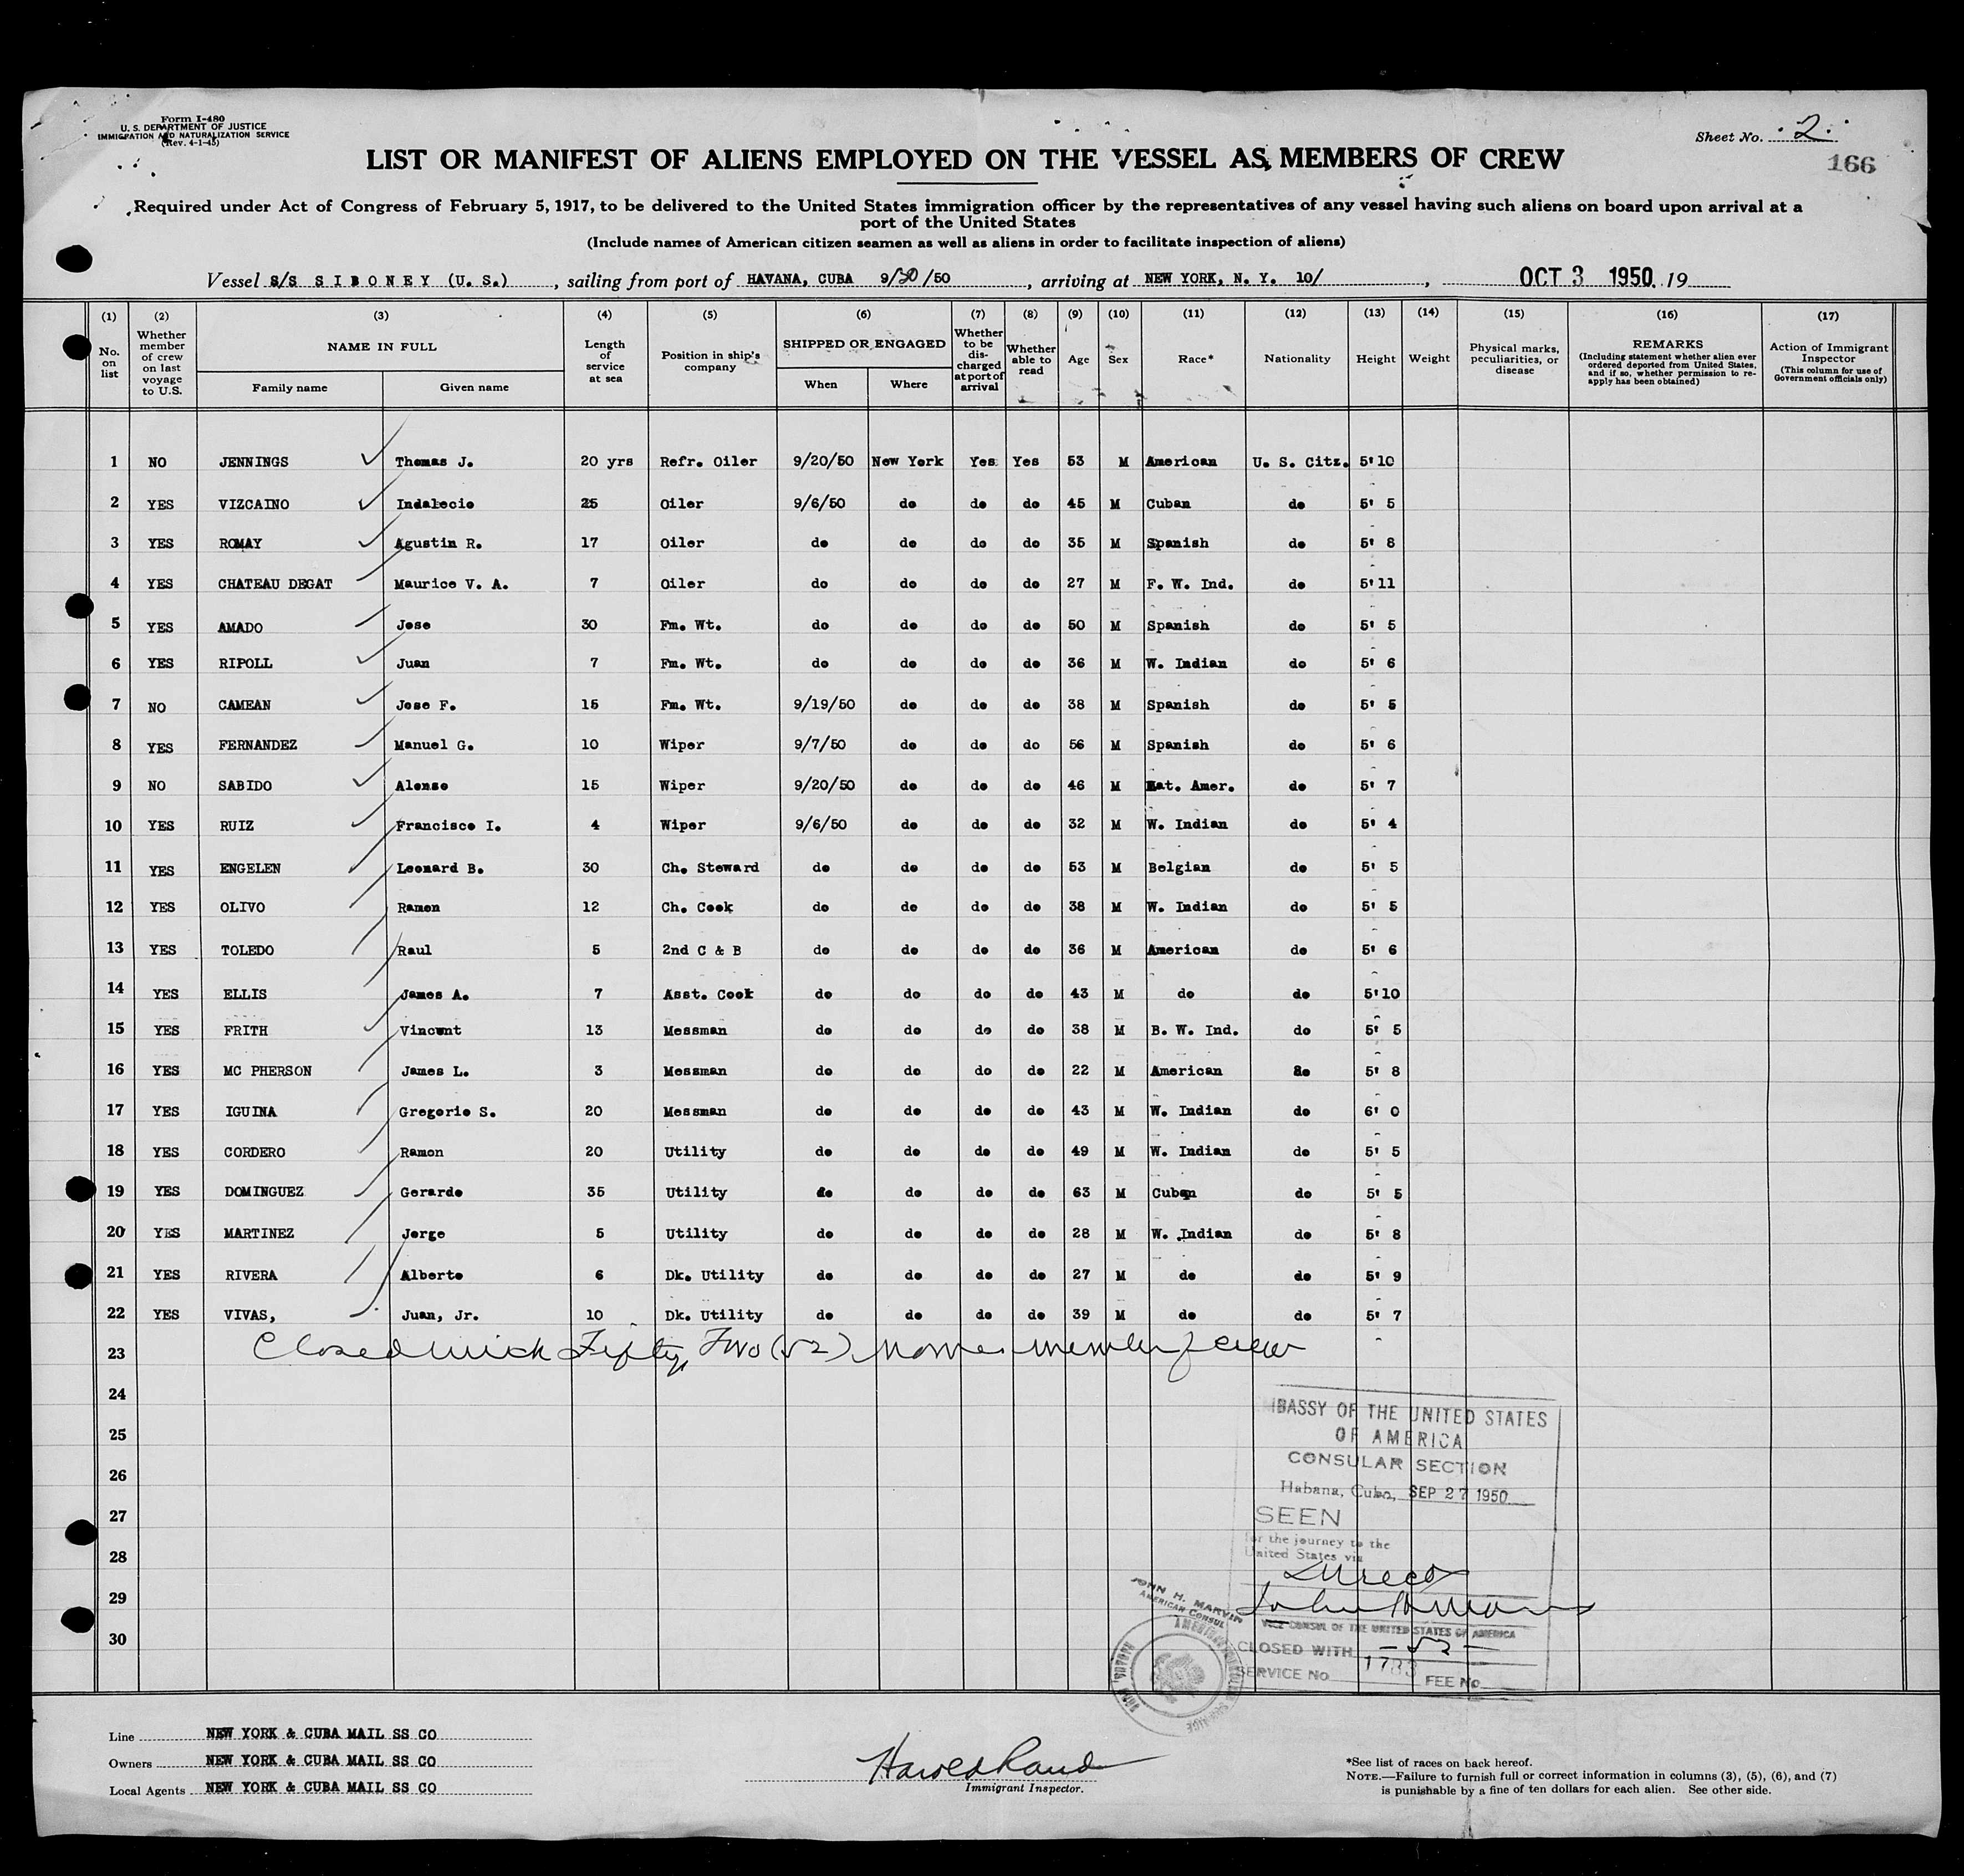 Form I-480
U. S. DEPARTMENT OF JUSTICE
IMMIGRATION AND NATURALIZATION SERVICE
(Rev. 4-1-45)
Sheet No. 2
166
LIST OR MANIFEST OF ALIENS EMPLOYED ON THE VESSEL AS MEMBERS OF CREW
Required under Act of Congress of February 5, 1917, to be delivered to the United States immigration officer by the representatives of any vessel having such aliens on board upon arrival at a
port of the United States
(Include names of American citizen seamen as well as aliens in order to facilitate inspection of aliens)
Vessel S/S SIBONEY (U. S.), sailing from port of HAVANA, CUBA 9/30/50, arriving at NEW YORK, N. Y. 10/, OCT 3 1950, 19
(1) No. on list (2) Whether member of crew on last voyage to U.S. (3) NAME IN FULL Family name Given name (4) Length of service at sea (5) Position in ship's company (6) SHIPPED OR ENGAGED When Where (7) Whether to be discharged at port of arrival (8) Whether able to read (9) Age (10) Sex (11) Race* (12) Nationality (13) Height (14) Weight (15) Physical marks, peculiarities, or disease (16) REMARKS (Including statement whether alien ever ordered deported from United States, and if so, whether permission to reapply has been obtained) (17) Action of Immigrant Inspector (This column for use of Government officials only)
1 NO JENNINGS Thomas J. 20 yrs Refr. Oiler 9/20/50 New York Yes Yes 53 M American U. S. Citz. 5'10
2 YES VIZCAINO Indalecio 25 Oiler 9/6/50 do do do 45 M Cuban do 5' 5
3 YES ROMAY Agustin R. 17 Oiler do do do do 35 M Spanish do 5' 8
4 YES CHATEAU DEGAT Maurice V. A. 7 Oiler do do do do 27 M F. W. Ind. do 5'11
5 YES AMADO Jose 30 Fm. Wt. do do do do 50 M Spanish do 5' 5
6 YES RIPOLL Juan 7 Fm. Wt. do do do do 36 M W. Indian do 5' 6
7 NO CAMEAN Jose F. 15 Fm. Wt. 9/19/50 do do do 38 M Spanish do 5' 5
8 YES FERNANDEZ Manuel G. 10 Wiper 9/7/50 do do do 56 M Spanish do 5' 6
9 NO SABIDO Alonso 15 Wiper 9/20/50 do do do 46 M Nat. Amer. do 5' 7
10 YES RUIZ Francisco I. 4 Wiper 9/6/50 do do do 32 M W. Indian do 5' 4
11 YES ENGELEN Leonard B. 30 Ch. Steward do do do do 53 M Belgian do 5' 5
12 YES OLIVO Ramon 12 Ch. Cook do do do do 38 M W. Indian do 5' 5
13 YES TOLEDO Raul 5 2nd C & B do do do do 36 M American do 5' 6
14 YES ELLIS James A. 7 Asst. Cook do do do do 43 M do do 5'10
15 YES FRITH Vincent 13 Messman do do do do 38 M B. W. Ind. do 5' 5
16 YES MC PHERSON James L. 3 Messman do do do do 22 M American do 5' 8
17 YES IGUINA Gregorio S. 20 Messman do do do do 43 M W. Indian do 6' 0
18 YES CORDERO Ramon 20 Utility do do do do 49 M W. Indian do 5' 5
19 YES DOMINGUEZ Gerardo 35 Utility do do do do 63 M Cuban do 5' 5
20 YES MARTINEZ Jorge 5 Utility do do do do 28 M W. Indian do 5' 8
21 YES RIVERA Alberto 6 Dk. Utility do do do do 27 M do do 5' 9
22 YES VIVAS, Juan, Jr. 10 Dk. Utility do do do do 39 M do do 5' 7
23 Closed with Fifty Two (52) names member of crew
24
25
26
27
28
29
30
EMBASSY OF THE UNITED STATES
OF AMERICA
CONSULAR SECTION
Habana, Cuba, SEP 27 1950
SEEN
for the journey to the
United States via
Direct
JOHN H. MARVIN
AMERICAN CONSUL
VICE CONSUL OF THE UNITED STATES OF AMERICA
CLOSED WITH - 52 -
SERVICE No. 1783 FEE No.
Line NEW YORK & CUBA MAIL SS CO
Owners NEW YORK & CUBA MAIL SS CO
Local Agents NEW YORK & CUBA MAIL SS CO
Harold Rand
Immigrant Inspector.
*See list of races on back hereof.
NOTE.—Failure to furnish full or correct information in columns (3), (5), (6), and (7)
is punishable by a fine of ten dollars for each alien. See other side.